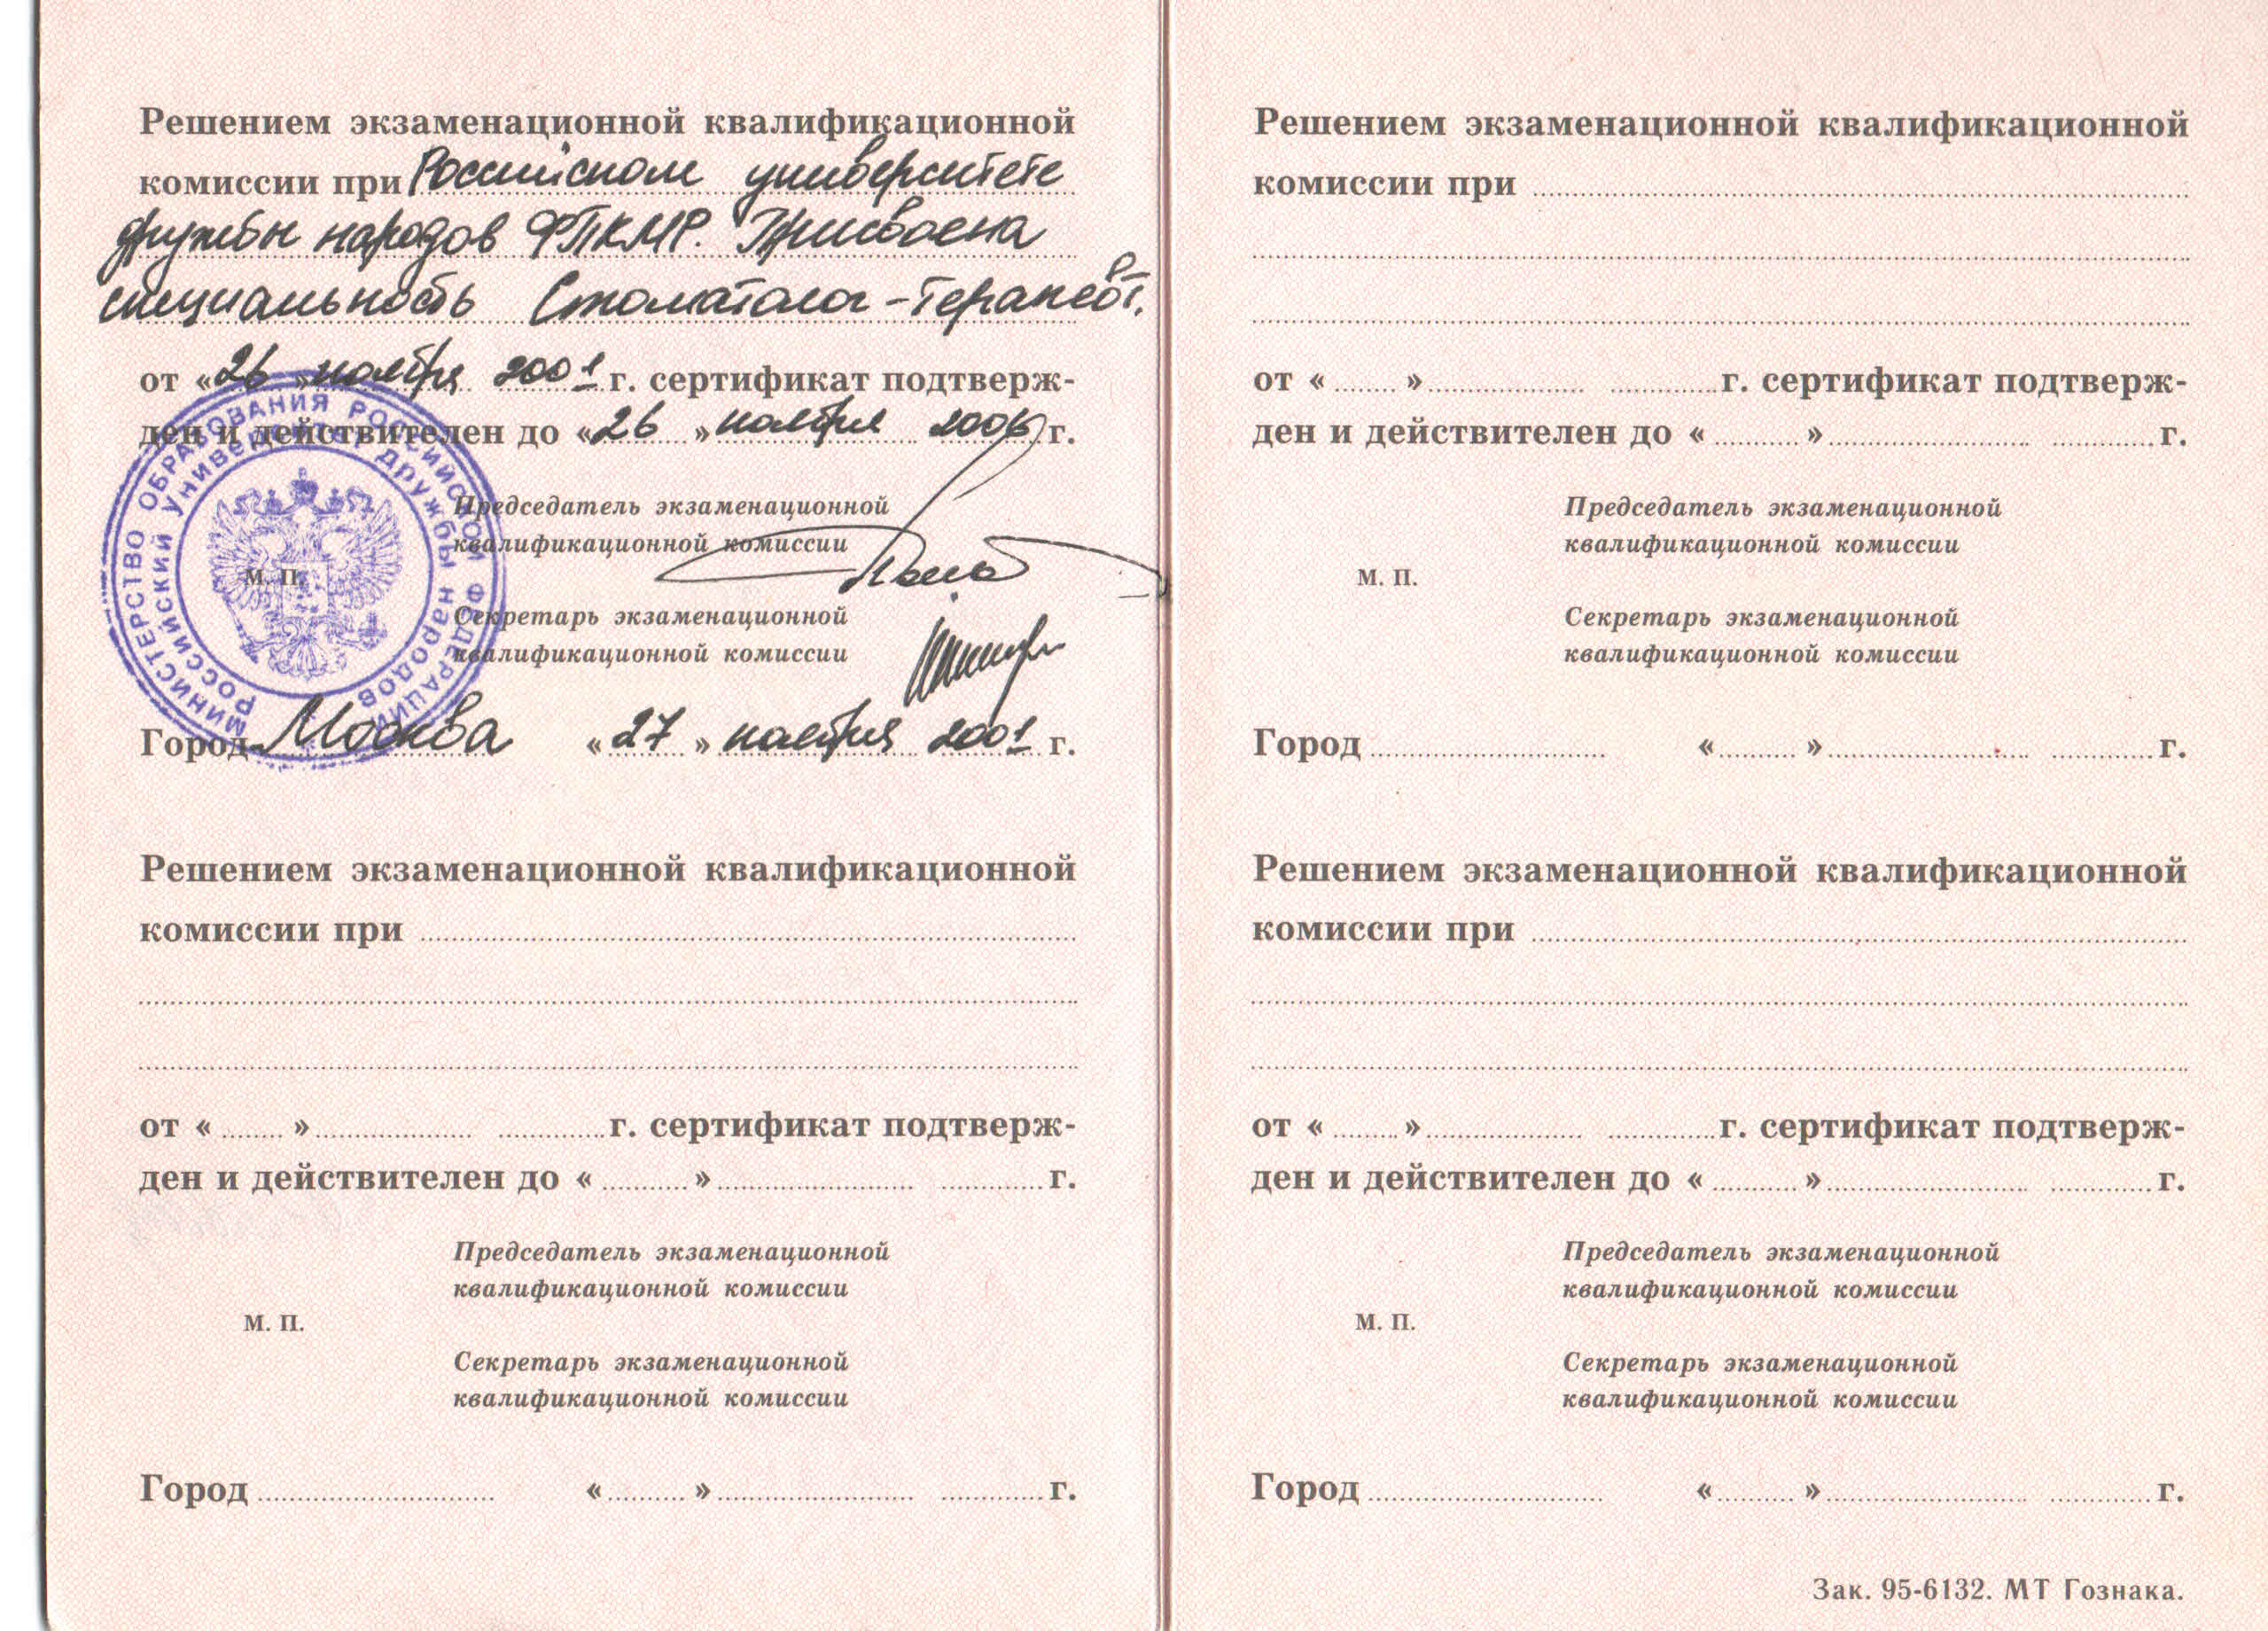 Решением экзаменационной квалификационной
комиссии при Российском университете
дружбы народов ФПКМР. Присвоена
специальность Стоматолог-терапевт.
от «26» ноября 2001 г. сертификат подтверж-
ден и действителен до «26» ноября 2006 г.
Председатель экзаменационной
квалификационной комиссии
М. П.
Секретарь экзаменационной
квалификационной комиссии
МИНИСТЕРСТВО ОБРАЗОВАНИЯ РОССИЙСКОЙ ФЕДЕРАЦИИ
РОССИЙСКИЙ УНИВЕРСИТЕТ ДРУЖБЫ НАРОДОВ
Город Москва «27» ноября 2001 г.
Решением экзаменационной квалификационной
комиссии при
от « » г. сертификат подтверж-
ден и действителен до « » г.
Председатель экзаменационной
квалификационной комиссии
М. П.
Секретарь экзаменационной
квалификационной комиссии
Город « » г.
Решением экзаменационной квалификационной
комиссии при
от « » г. сертификат подтверж-
ден и действителен до « » г.
Председатель экзаменационной
квалификационной комиссии
М. П.
Секретарь экзаменационной
квалификационной комиссии
Город « » г.
Решением экзаменационной квалификационной
комиссии при
от « » г. сертификат подтверж-
ден и действителен до « » г.
Председатель экзаменационной
квалификационной комиссии
М. П.
Секретарь экзаменационной
квалификационной комиссии
Город « » г.
Зак. 95-6132. МТ Гознака.